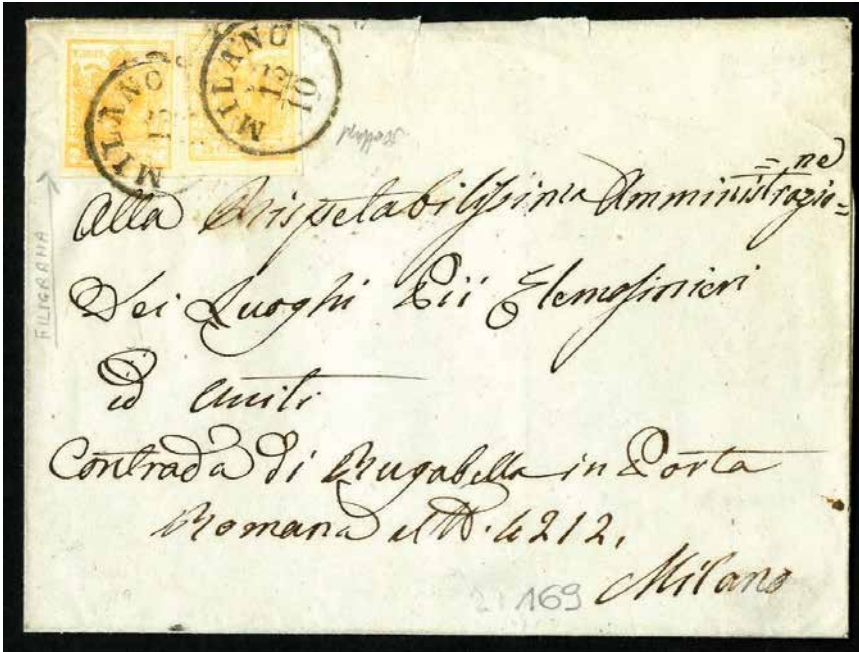 MILANO
13
MILANO
13
10
FILIGRANA
Alla Rispetabilissima Amministrazio=
=ne
Dei Luoghi Pii Elemosinieri
ed Uniti
Contrada di Rugabella in Porta
Romana al N. 4212.
Milano
169